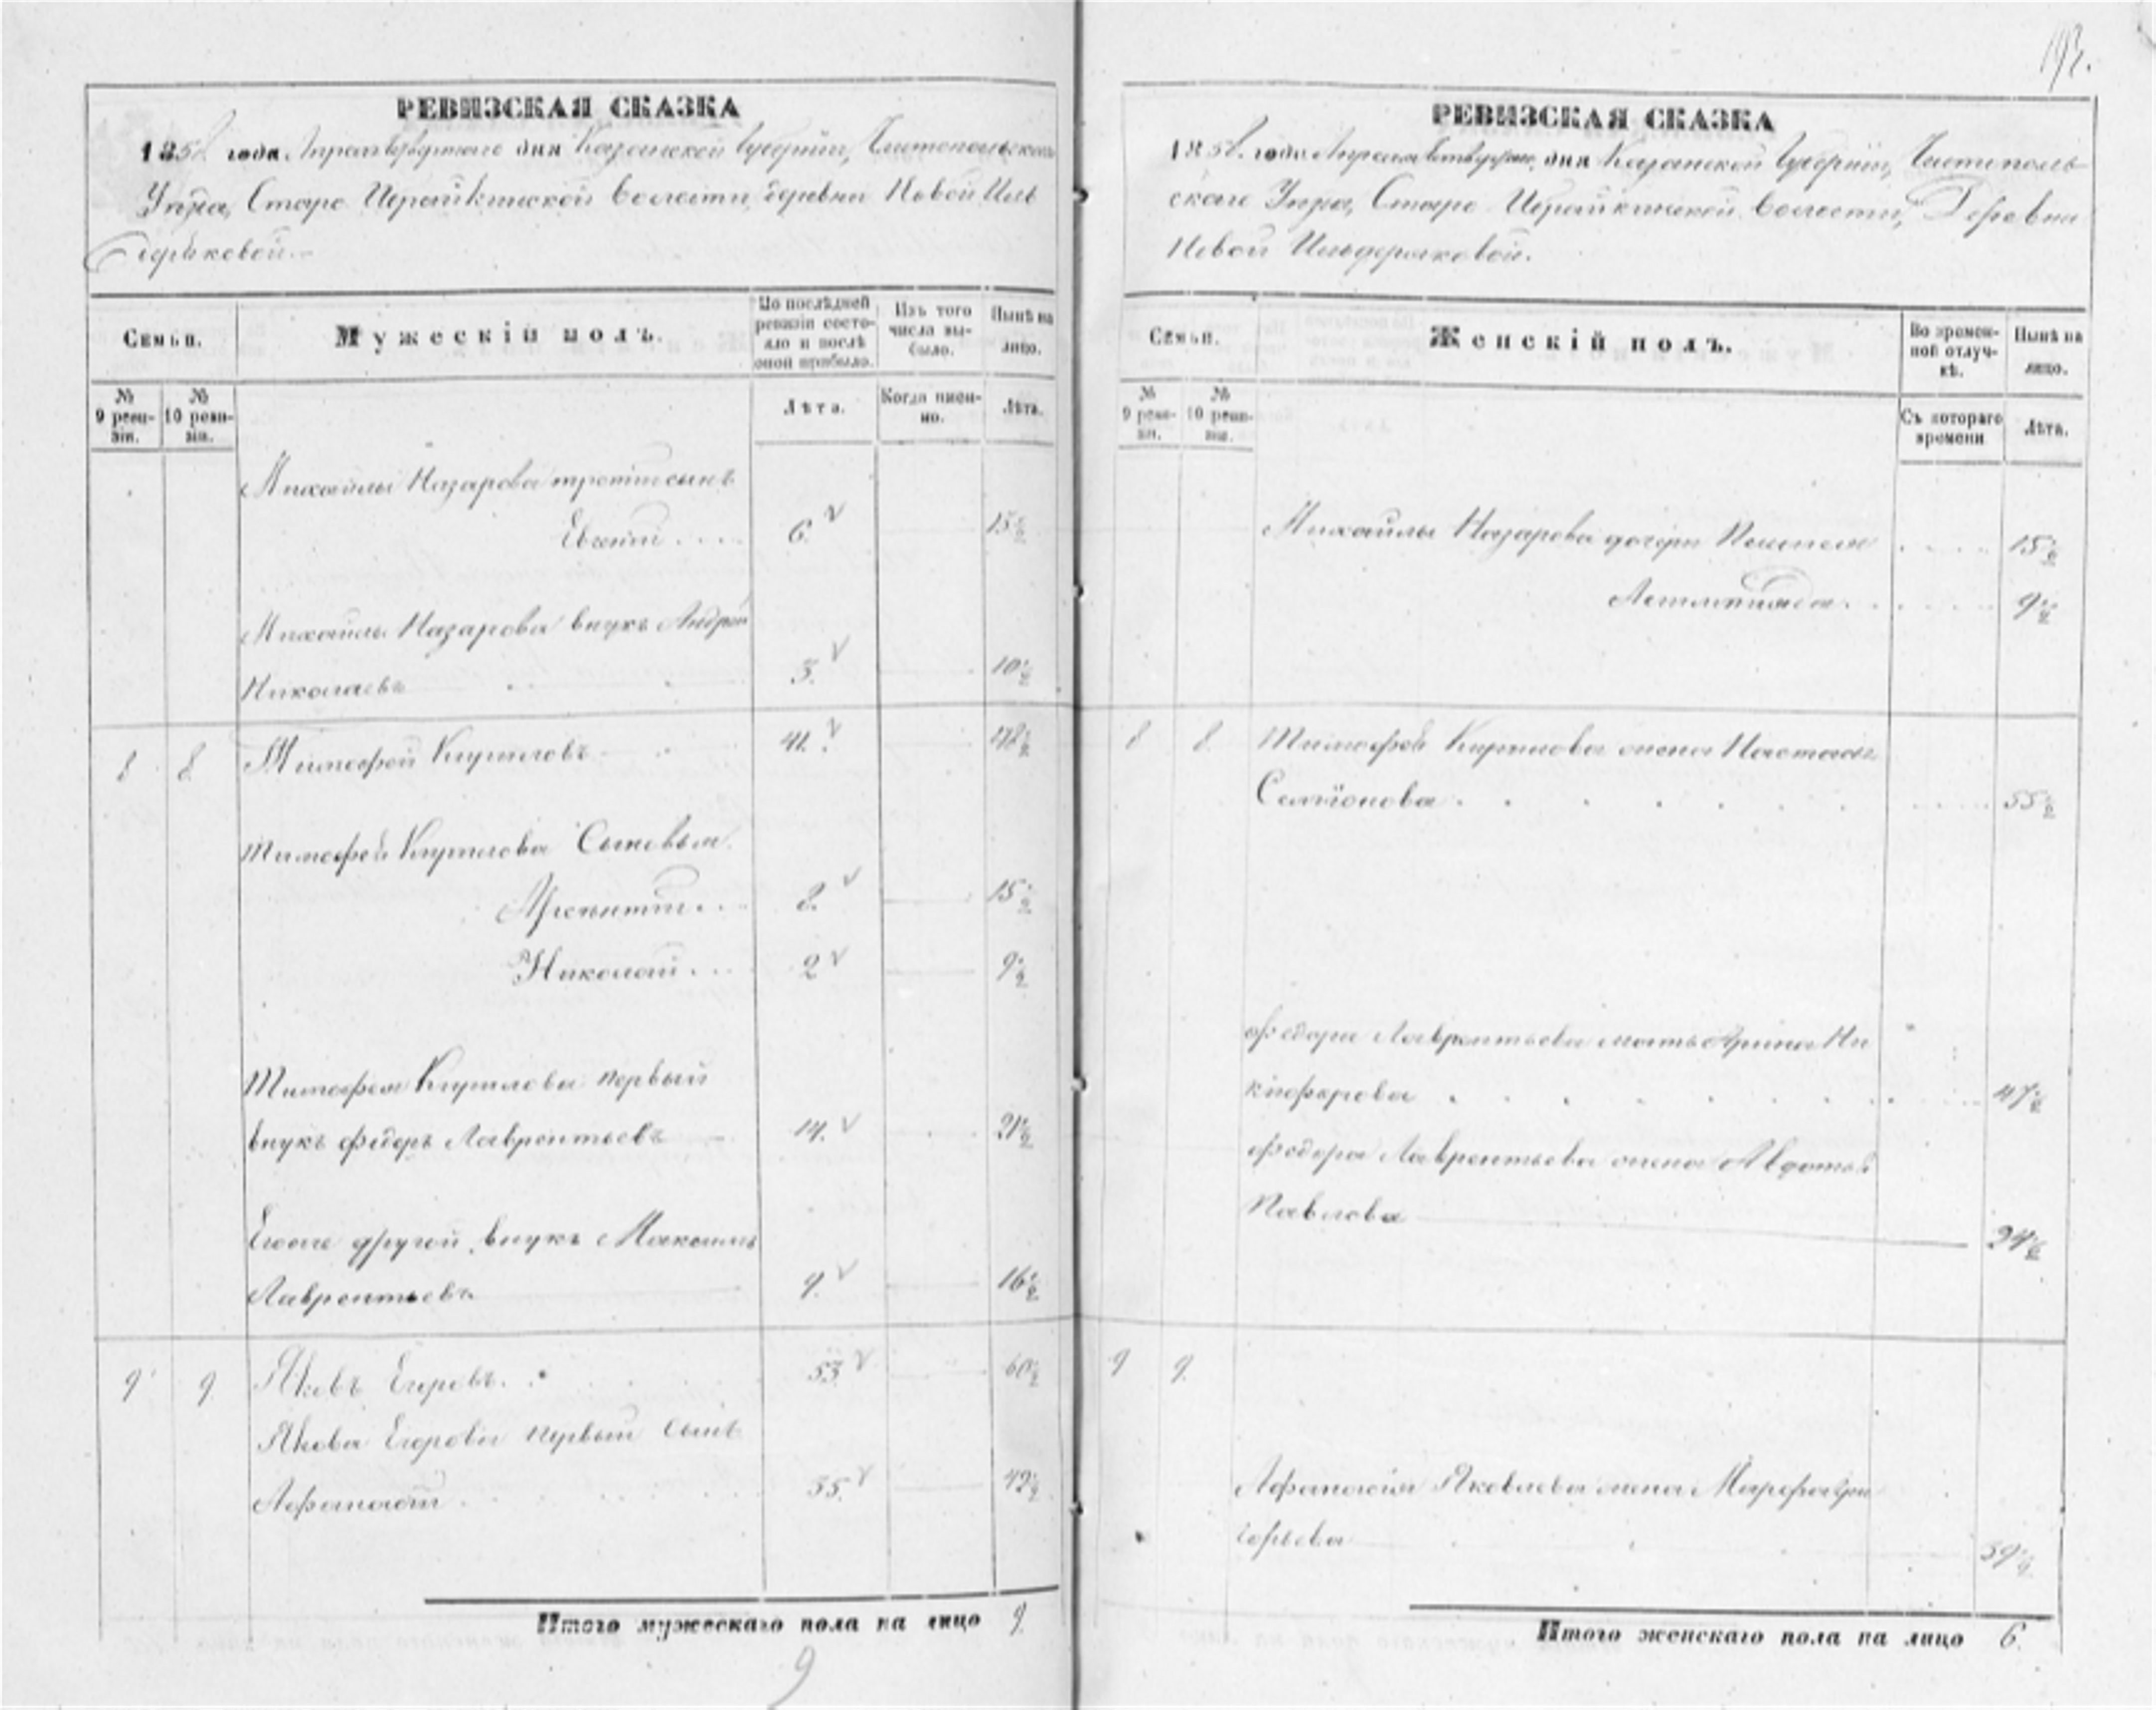 193.
РЕВИЗСКАЯ СКАЗКА
1858 года Апреля четвертаго дня Казанской Губернїи, Чистопольскаго
Уѣзда, Старо Иерайкинской Волости, деревни Новой Иль
деряковой.
Семьи.
Мужескій полъ.
По послѣдней ревизіи состо-
яло и послѣ оной прибыло.
Изъ того числа вы-
было.
Нынѣ на лицо.
№ 9 реви-
зіи.
№ 10 реви-
зіи.
Лѣта.
Когда имен-
но.
Лѣта.
Михайлы Назарова третій сынъ
Евсей 6. 15½
Михайлы Назарова внукъ Андрей
Николаевъ 3. 10½
8 8 Тимофей Кириловъ 41. 48½
Тимофея Кирилова Сыновья
8. 15½
Николай 2 9½
Тимофея Кирилова первый
внукъ Федоръ Лаврентьевъ 14. 21½
Егоже другой внукъ Максимъ
Лаврентьевъ 9. 16½
9 9 Яковъ Егоровъ. 53 60½
Якова Егорова первый сынъ
Афанасій 35. 42½
Итого мужескаго пола на лицо 9.
9
РЕВИЗСКАЯ СКАЗКА
1858. года Апреля четвертаго дня Казанской Губернїи, Чистополь
скаго Уѣзда, Старо Иерайкинской Волости, Деревни
Новой Ильдеряковой.
Семьи.
Женскій полъ.
Во времен-
ной отлуч-
кѣ.
Нынѣ на лицо.
№ 9 реви-
зіи.
№ 10 реви-
зіи.
Съ котораго времени
Лѣта.
Михайлы Назарова дочери 15½
9½
8 8. Тимофея Кирилова жена Настасья
Семіонова 55½
Федора Лаврентьева мать Арина Ни
кифорова 47½
Федора Лаврентьева жена Авдотья
Павлова 24½
9 9.
Афанасія Яковлева жена Марфа Гри
горьева 39½
Итого женскаго пола на лицо 6.